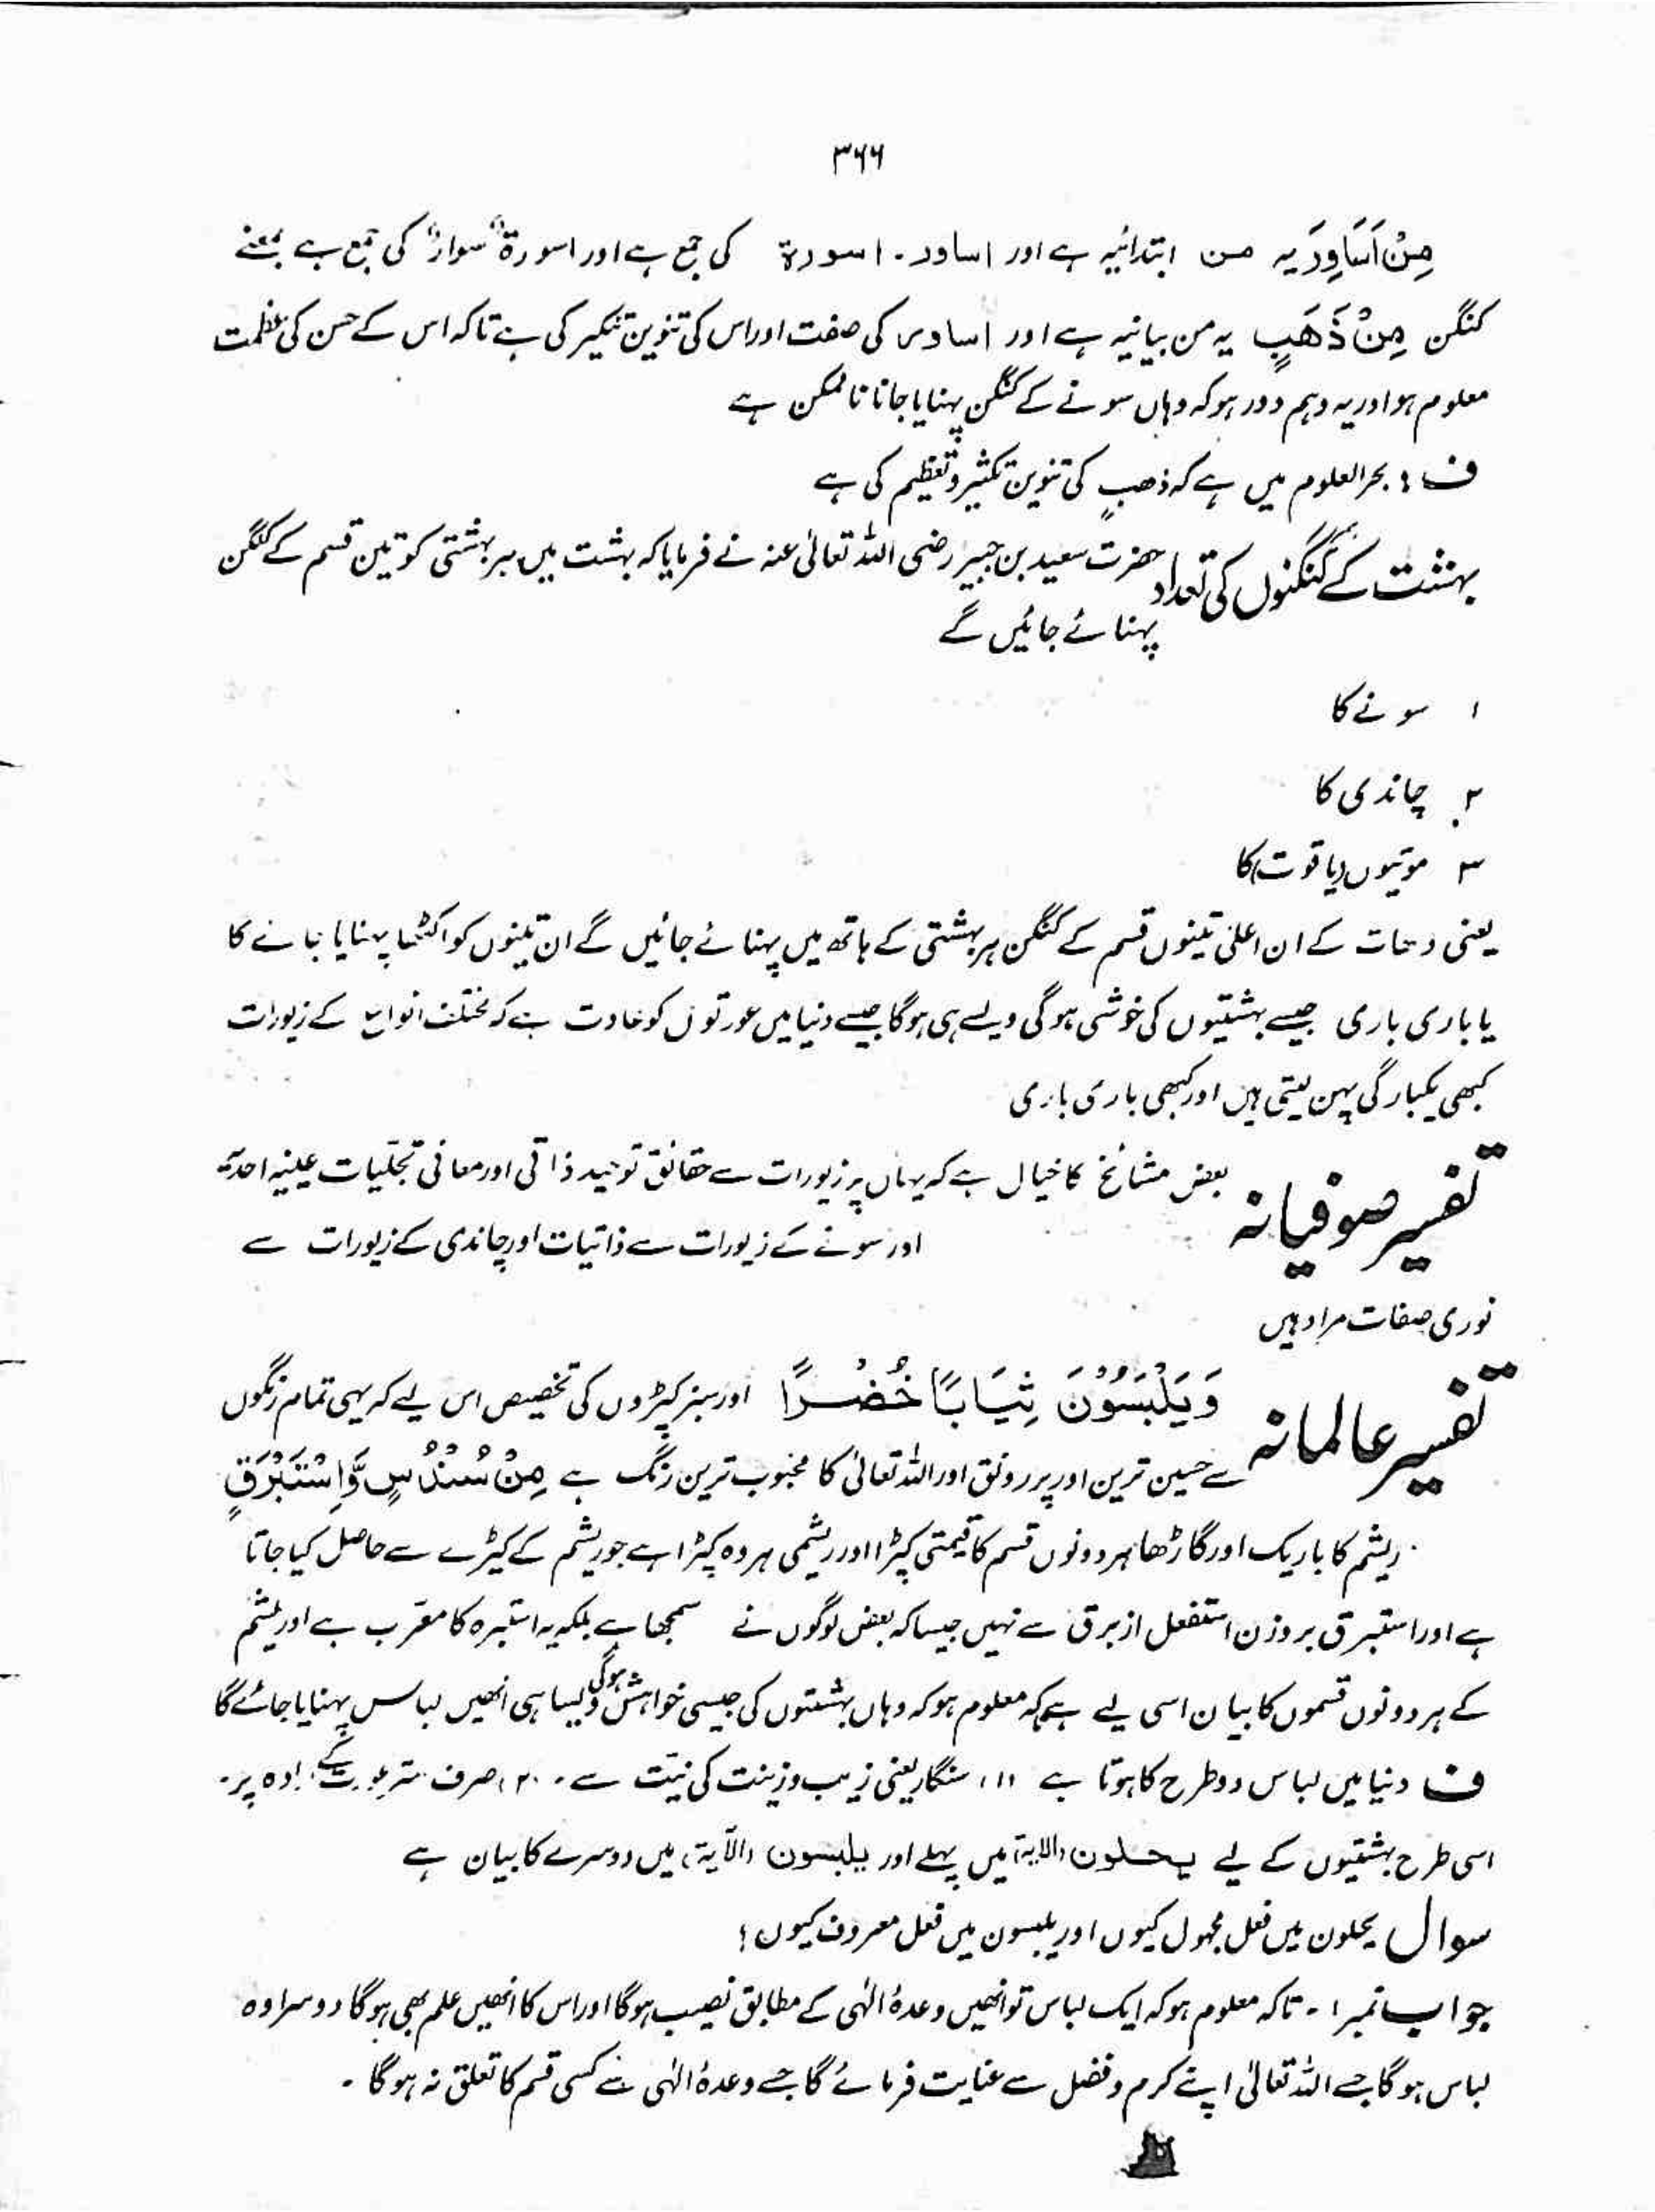 ۳۶۶
مِنْ اَسَاوِرَ یہ من ابتدائیہ ہے اور اساور۔ اسورۃ کی جمع ہے اور اسورۃ "سوار" کی جمع ہے بمعنے
کنگن مِنْ ذَهَبٍ یہ من بیانیہ ہے اور اساور کی صفت اور اس کی تنوین تنکیر کی ہے تاکہ اس کے حسن کی عظمت
معلوم ہو اور یہ وہم دور ہو کہ وہاں سونے کے کنگن پہنایا جانا ناممکن ہے
ف : بحر العلوم میں ہے کہ ذھبٍ کی تنوین تکثیر و تعظیم کی ہے
بہشت کے کنگنوں کی تعداد حضرت سعید بن جبیر رضی اللہ تعالیٰ عنہ نے فرمایا کہ بہشت میں ہر بہشتی کو تین قسم کے کنگن
پہنائے جائیں گے
۱ سونے کا
۲. چاندی کا
۳ موتیوں (یاقوت) کا
یعنی دھات کے ان اعلیٰ تینوں قسم کے کنگن ہر بہشتی کے ہاتھ میں پہنائے جائیں گے ان تینوں کو اکٹھا پہنایا جانے کا
یا باری باری جیسے بہشتیوں کی خوشی ہوگی ویسے ہی ہوگا جیسے دنیا میں عورتوں کو عادت ہے کہ مختلف انواع کے زیورات
کبھی یکبارگی پہن لیتی ہیں اور کبھی باری باری
تفسیر صوفیانہ بعض مشائخ کا خیال ہے کہ یہاں پر زیورات سے حقائق توحید ذاتی اور معانی تجلیات عینیہ احدیہ
اور سونے کے زیورات سے ذاتیات اور چاندی کے زیورات سے
نوری صفات مراد ہیں
تفسیر عالمانہ وَيَلْبَسُوْنَ ثِيَابًا خُضْرًا اور سبز کپڑوں کی تخصیص اس لیے کہ یہی تمام رنگوں
سے حسین ترین اور پر رونق اور اللہ تعالیٰ کا محبوب ترین رنگ ہے مِنْ سُنْدُسٍ وَّاِسْتَبْرَقٍ
ریشم کا باریک اور گاڑھا ہر دونوں قسم کا قیمتی کپڑا اور ریشمی ہر وہ کپڑا ہے جو ریشم کے کیڑے سے حاصل کیا جاتا
ہے اور استبرق بروزن استفعل از برق سے نہیں جیسا کہ بعض لوگوں نے سمجھا ہے بلکہ یہ استبرہ کا معرب ہے اور ریشم
کے ہر دونوں قسموں کا بیان اسی لیے ہے کہ معلوم ہو کہ وہاں بہشتوں کی جیسی خواہش ہوگی ویسا ہی انھیں لباس پہنایا جائے گا
ف دنیا میں لباس دو طرح کا ہوتا ہے (۱) سنگار یعنی زیب و زینت کی نیت سے۔ (۲) صرف ستر عورت کے ارادہ پر۔
اسی طرح بہشتیوں کے لیے یحلون (الایۃ) میں پہلے اور یلبسون (الآیۃ) میں دوسرے کا بیان ہے
سوال یحلون میں فعل مجہول کیوں اور یلبسون میں فعل معروف کیوں؟
جواب نمبر ۱ - تاکہ معلوم ہو کہ ایک لباس تو انھیں وعدۂ الٰہی کے مطابق نصیب ہوگا اور اس کا انھیں علم بھی ہوگا دوسرا وہ
لباس ہوگا جسے اللہ تعالیٰ اپنے کرم و فضل سے عنایت فرمائے گا جسے وعدۂ الٰہی سے کسی قسم کا تعلق نہ ہوگا ۔